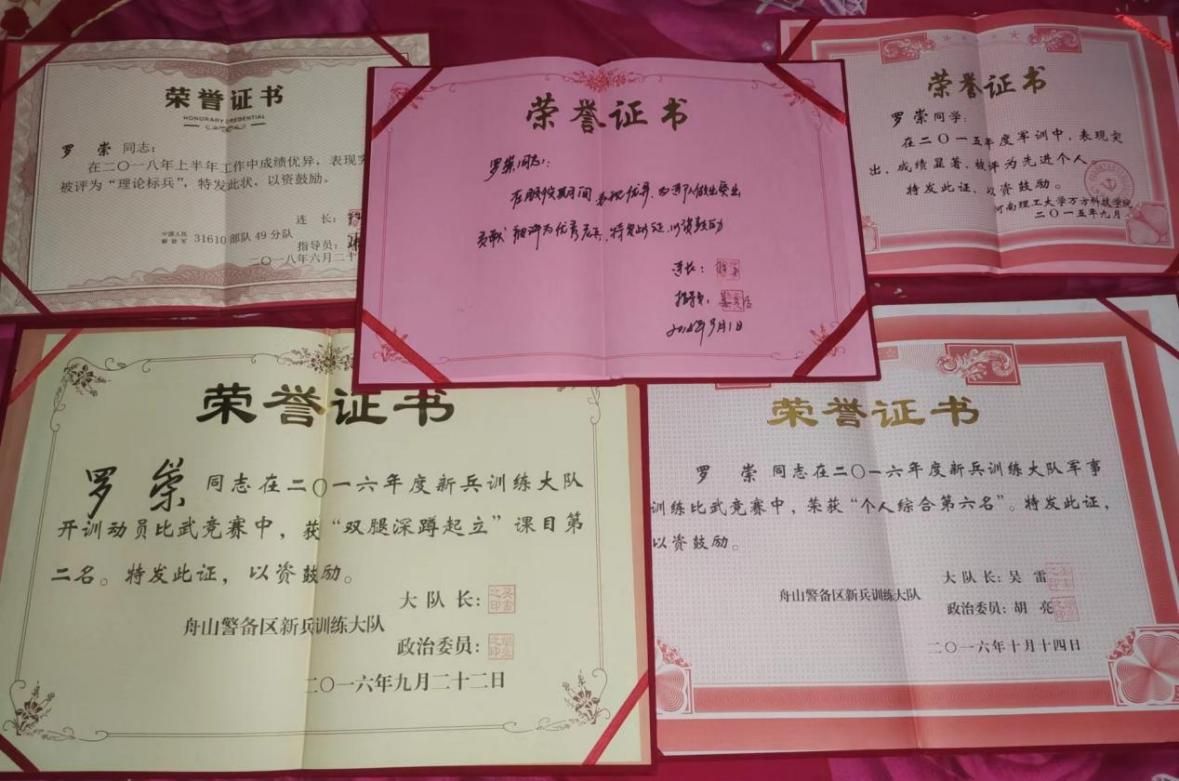 荣誉证书
HONORARY CREDENTIAL
罗 崇 同志:
在二〇一八年上半年工作中成绩优异,表现突
被评为“理论标兵”,特发此状,以资鼓励。
连 长:
中国人民
解放军 31610部队49分队
指导员:
二〇一八年六月二十
荣誉证书
罗崇同志:
在服役期间,表现优异,为部队做出突出
贡献,被评为优秀士兵,特发此证,以资鼓励
连长:
指导员:
2018年9月1日
荣誉证书
罗 崇 同学:
在二〇一五年度军训中,表现突
出,成绩显著,被评为先进个人。
特发此证,以资鼓励。
河南理工大学万方科技学院
二〇一五年九月
荣誉证书
罗 崇 同志在二〇一六年度新兵训练大队
开训动员比武竞赛中,获“双腿深蹲起立”课目第
二名。特发此证,以资鼓励。
大 队 长:
舟山警备区新兵训练大队
政治委员:
二〇一六年九月二十二日
荣誉证书
罗 崇 同志在二〇一六年度新兵训练大队军事
训练比武竞赛中,荣获“个人综合第六名”。特发此证,
以资鼓励。
大 队 长:吴 雷
舟山警备区新兵训练大队
政治委员:胡 亮
二〇一六年十月十四日